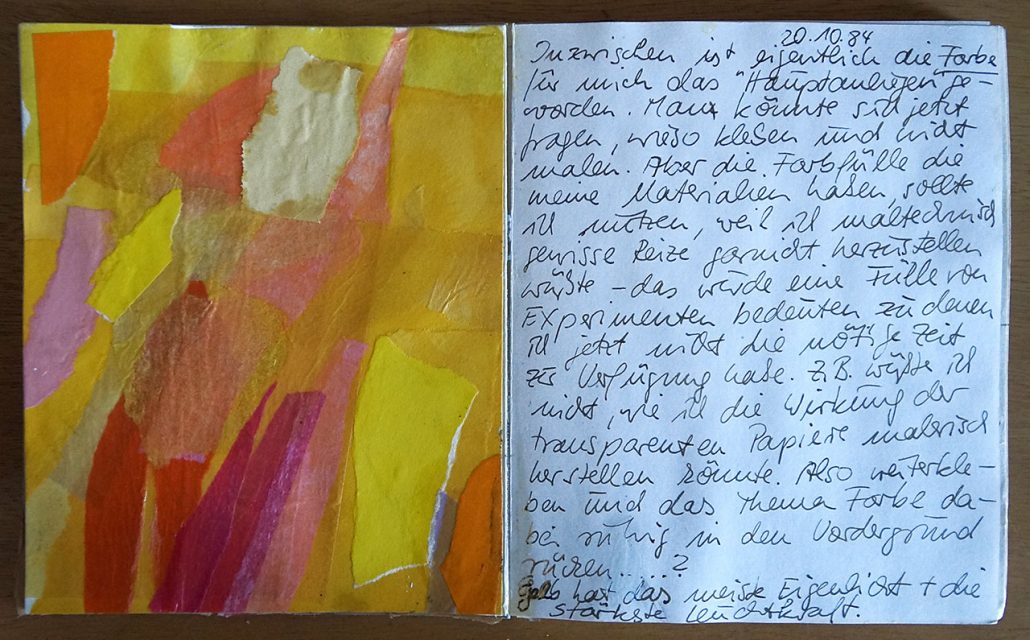 20.10.84
Inzwischen ist eigentlich die Farbe
für mich das "Hauptanliegen" ge-
worden. Man könnte sich jetzt
fragen, wieso kleben und nicht
malen. Aber die Farbfülle die
meine Materialien haben, sollte
ich nutzen, weil ich maltechnisch
gewisse Reize garnicht herzustellen
wüßte - das würde eine Fülle von
Experimenten bedeuten zu denen
ich jetzt nicht die nötige Zeit
zur Verfügung habe. Z.B. wüßte ich
nicht, wie ich die Wirkung der
transparenten Papiere malerisch
herstellen könnte. Also weiterkle-
ben und das Thema Farbe da-
bei ruhig in den Vordergrund
rücken.....?
Gelb hat das meiste Eigenlicht + die
stärkste Leuchtkraft.